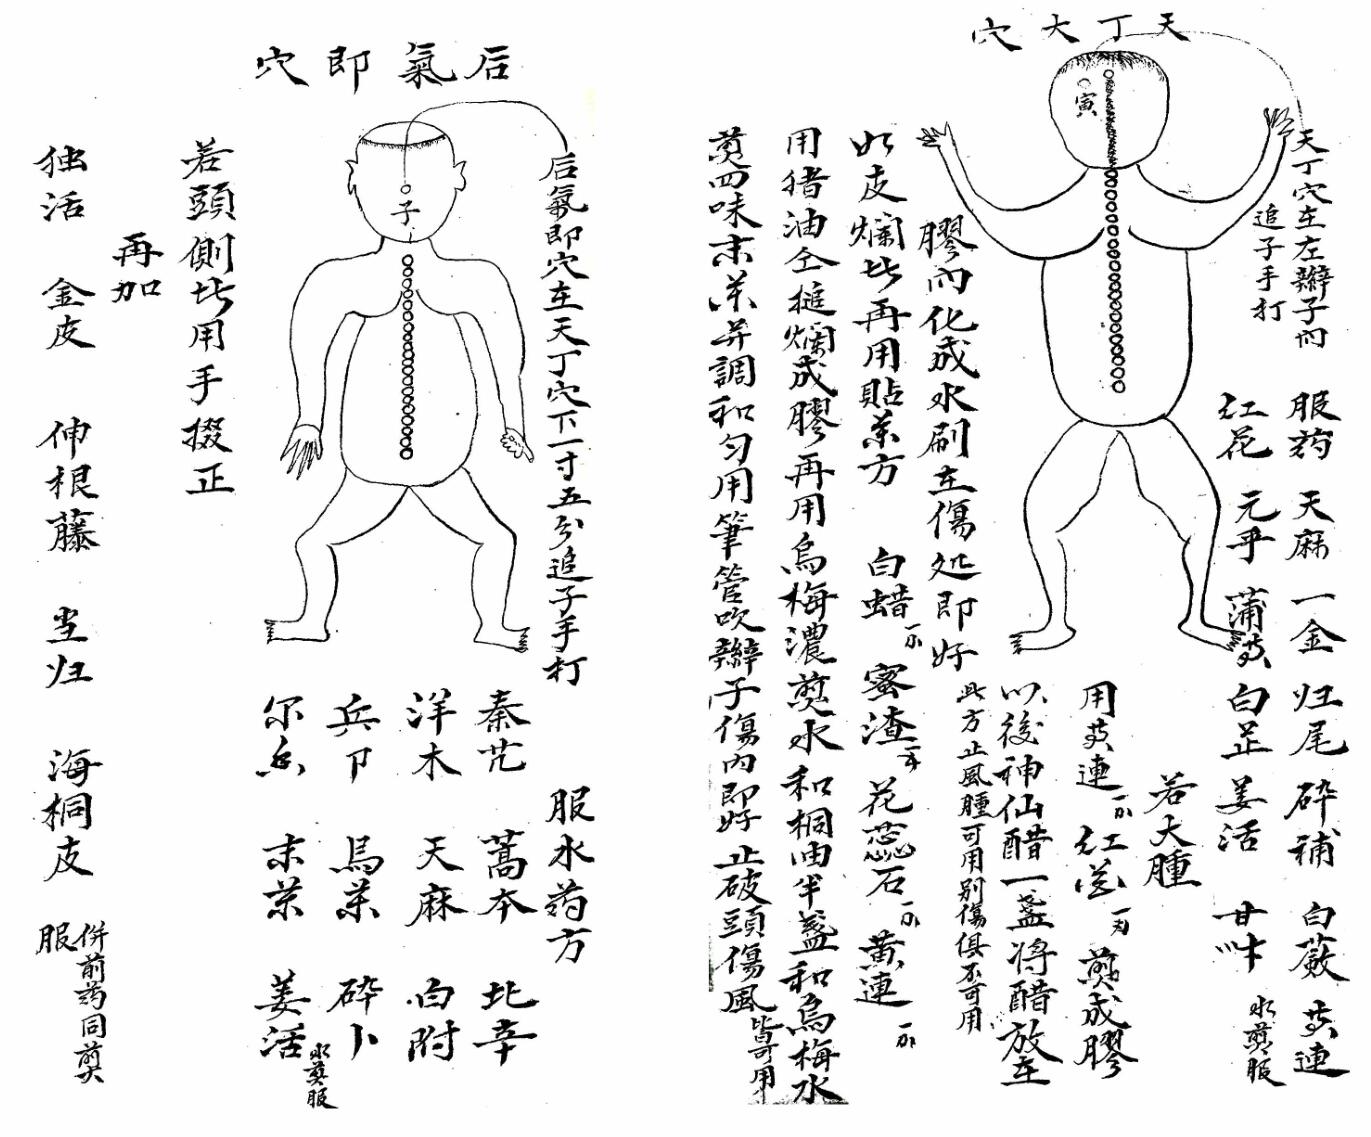 天丁大穴
寅
天丁穴在左辮子內
追子手打
服药 天麻 一金 归尾 碎補 白蔹 黄連
红花 元乎 蒲黄 白芷 羌活 甘艸 水煎服
若大腫
用黄連 红花 煎成膠
以後神仙醋一盞将醋放在
膠內化成水刷在傷処即好
此方止風腫可用别傷俱不可用
如皮爛些再用貼茶方 白蜡 蜜渣 花蕊石 黄連
用猪油仝搥爛成膠再用烏梅濃煎水和桐油半盞和烏梅水
煎四味末茶并調和匀用筆管吹辮子傷內即好 止破頭傷風皆可用
后氣即穴
子
后氣即穴在天丁穴下一寸五分追子手打
服水药方
秦艽 蒿本 北辛
洋木 天麻 白附
兵卩 烏茶 碎卜
尔香 末茶 姜活 水煎服
若頭側些用手掇正
再加
独活 金皮 伸根藤 当归 海桐皮 併前药同煎服